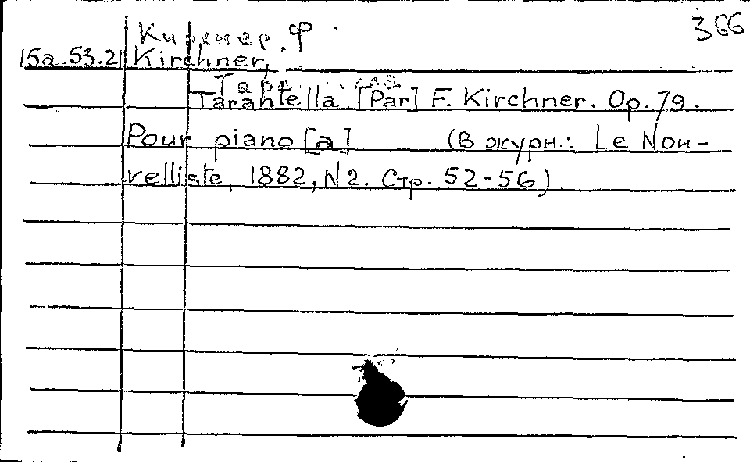 366
Кирхнер, Ф.
15а.53.2 Kirchner,
Tarantella [Par] F. Kirchner. Op. 79.
Pour piano [a] (В журн.: Le Nou-
velliste, 1882, N2. Стр. 52-56)